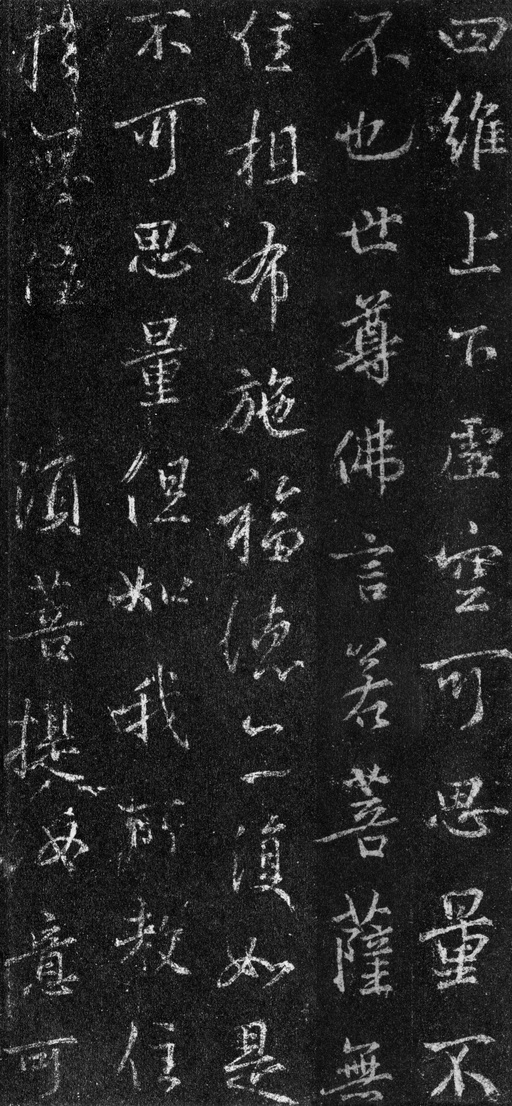 四維上下虛空可思量不
不也世尊佛言若菩薩無
住相布施福德須如是
不可思量但如我所教住
無住須菩提意可